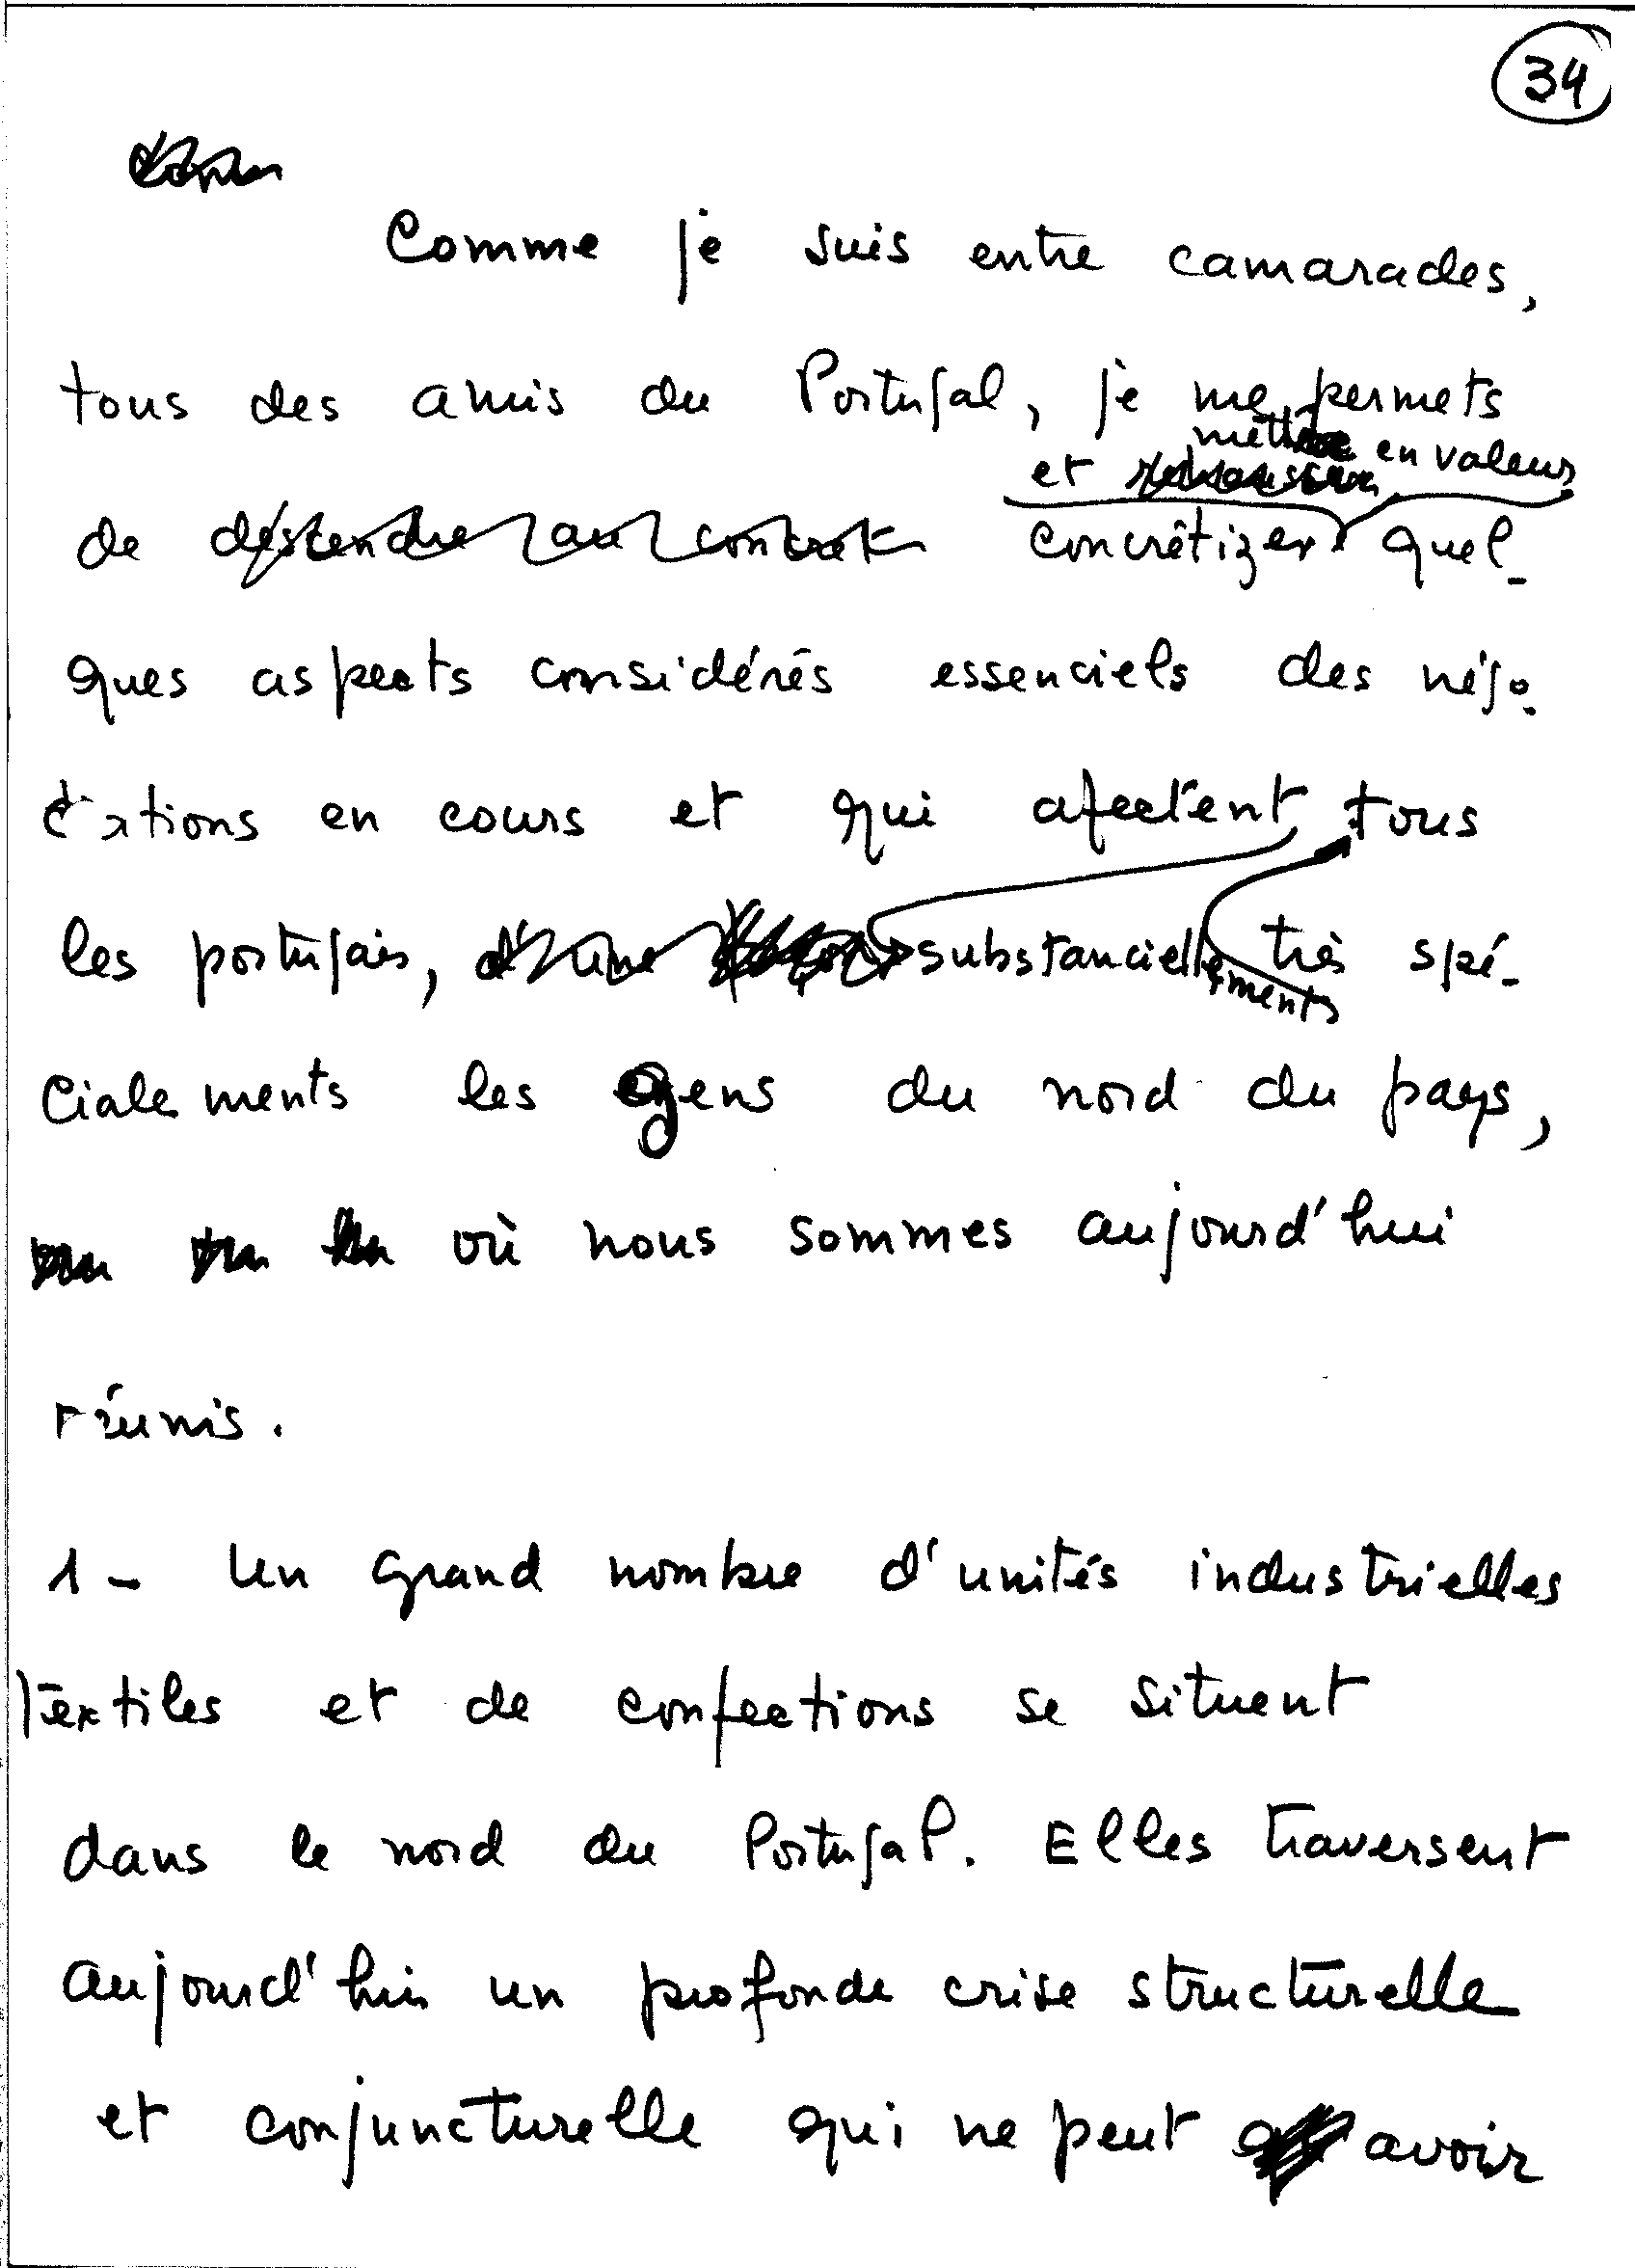 34
Comme je suis entre camarades,
tous des amis du Portugal, je me permets
mettre en valeur
et
de descendre au concret concrêtizer quel-
ques aspects considérés essenciels des négo-
ciations en cours et qui afectent tous
les portugais, d'une substanciellements très spé-
cialements les gens du nord du pays,
où nous sommes aujourd'hui
réunis.
1- Un grand nombre d'unités industrielles
textiles et de confections se situent
dans le nord du Portugal. Elles traversent
aujourd'hui un profonde crise structurelle
et conjuncturelle qui ne peut avoir